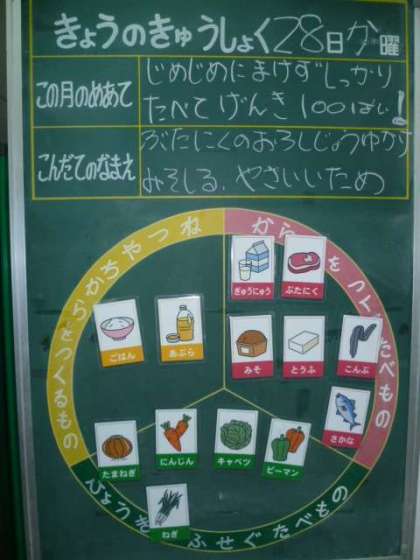 きょうのきゅうしょく 28日 か 曜
この月のめあて
じめじめにまけずしっかり
たべて げんき 100ばい!
こんだてのなまえ
ぶたにくのおろしじょうゆかけ
みそしる、やさいいため
ちからやねつをつくるもの
からだをつくるたべもの
ぎゅうにゅう
ぶたにく
ごはん
あぶら
みそ
とうふ
こんぶ
さかな
たまねぎ
にんじん
キャベツ
ピーマン
ねぎ
びょうきをふせぐたべもの